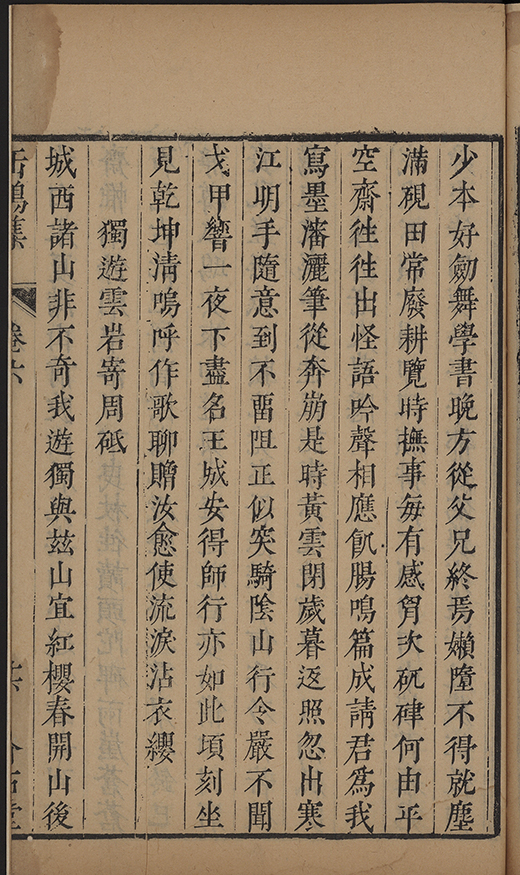 少本好劒舞學書晚方從父兄終焉嬾墮不得就塵
滿硯田常廢耕覽時撫事每有感胷次矹硉何由平
空齋徃徃出怪語吟聲相應飢腸鳴篇成請君爲我
寫墨瀋灑筆從奔崩是時黃雲閉歲暮返照忽出寒
江明手隨意到不畱阻正似突騎陰山行令嚴不聞
戈甲響一夜下盡名王城安得師行亦如此頃刻坐
見乾坤清嗚呼作歌聊贈汝愈使流淚沾衣纓
獨遊雲岩寄周砥
城西諸山非不奇我遊獨與玆山宜紅櫻春開山後
缶鳴集
卷六